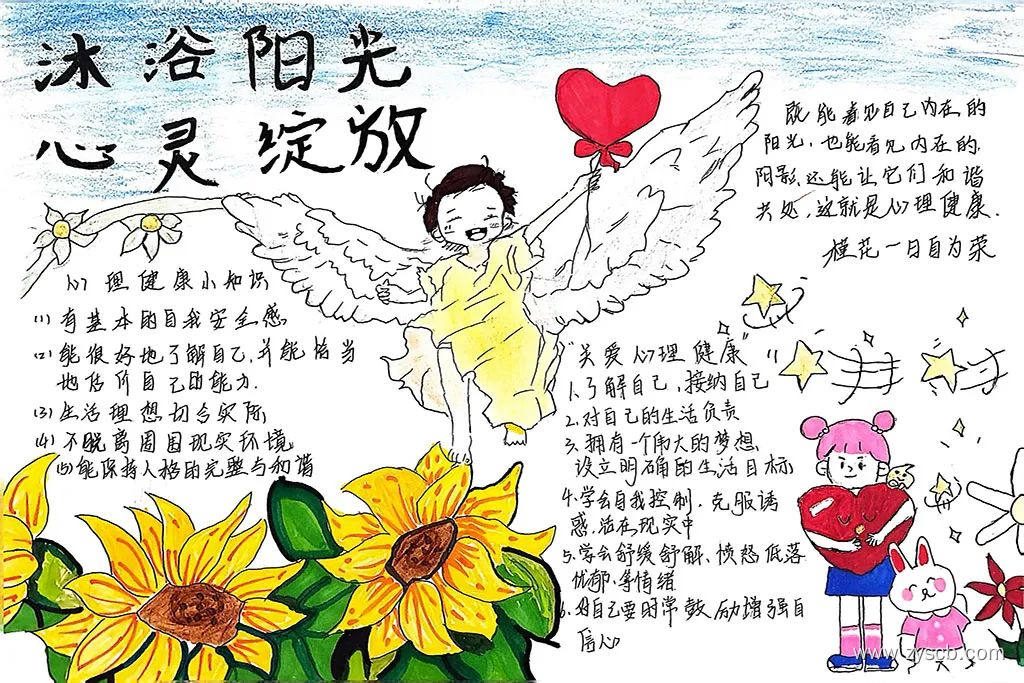 沐浴阳光
心灵绽放
既能看见自己内在的
阳光，也能看见内在的
阴影，还能让它们和谐
共处，这就是心理健康.
槿花一日自为荣
心理健康小知识
(1) 有基本的自我安全感
(2) 能很好地了解自己，并能恰当
地估价自己的能力.
(3) 生活理想切合实际
(4) 不脱离周围现实环境
(5) 能保持人格的完整与和谐
“关爱心理健康”
1.了解自己，接纳自己
2.对自己的生活负责
3.拥有一个伟大的梦想
设立明确的生活目标
4.学会自我控制，克服诱
惑，活在现实中
5.学会舒缓舒解、愤怒低落
忧郁、等情绪
6.对自己要时常鼓励增强自
信心
www.zyscb.com